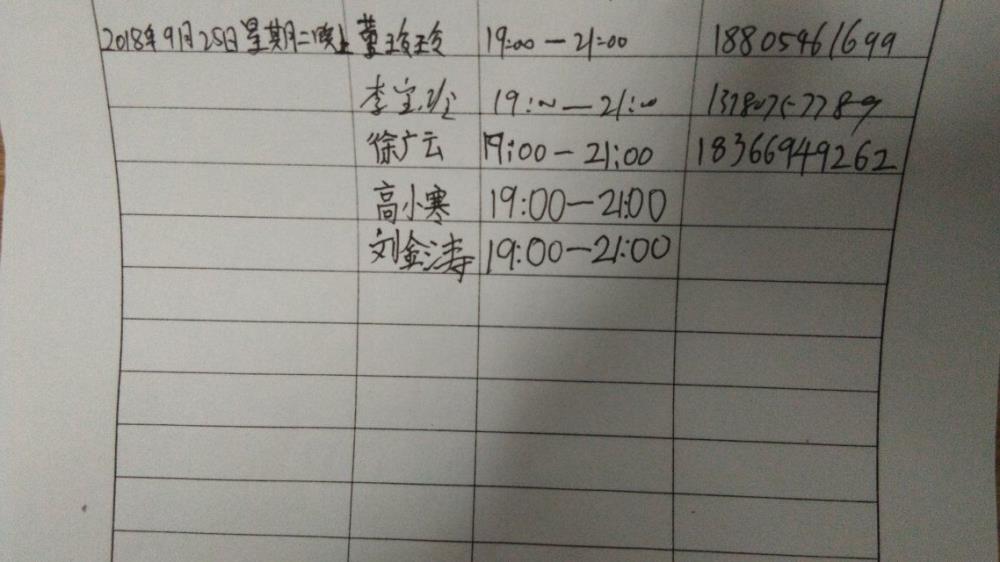 2018年9月25日星期二晚上 董玲玲 19:00—21:00 18805461699
李宝 19:00—21:00
徐广云 19:00—21:00 18366949262
高小寒 19:00—21:00
刘金涛 19:00—21:00